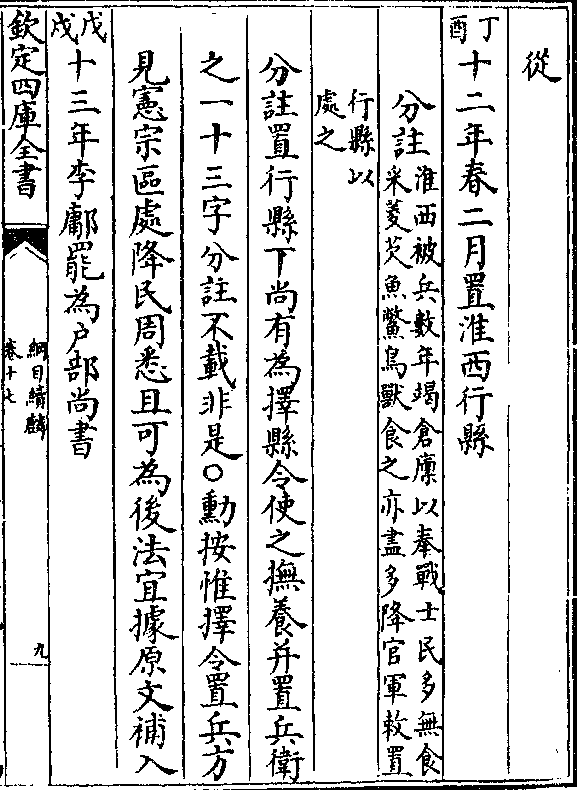 從
丁酉十二年春二月置淮西行縣
分註淮西被兵數年竭倉廪以奉戰士民多無食
采菱芡魚鱉鳥獸食之亦盡多降官軍敕置
行縣以
處之
分註置行縣下尚有為擇縣令使之撫養并置兵衛
之一十三字分註不載非是○勳按惟擇令置兵方
見憲宗區處降民周悉且可為後法宜據原文補入
戊戌十三年李鄘罷為戶部尚書
欽定四庫全書
綱目續麟
卷十七
九